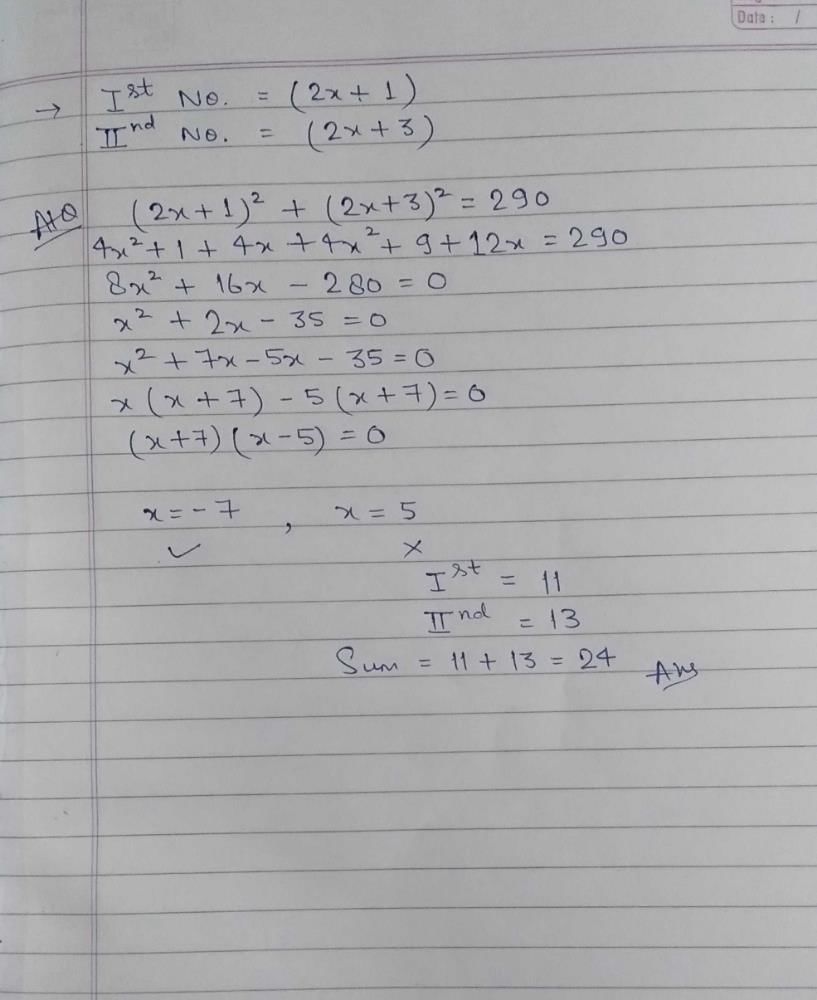 Date: /
→ Ist No. = (2x + 1)
IInd No. = (2x + 3)
AtQ (2x + 1)² + (2x+3)² = 290
4x² + 1 + 4x + 4x² + 9 + 12x = 290
8x² + 16x - 280 = 0
x² + 2x - 35 = 0
x² + 7x - 5x - 35 = 0
x (x + 7) - 5 (x + 7) = 0
(x+7) (x-5) = 0
x = -7 , x = 5
✓ ×
Ist = 11
IInd = 13
Sum = 11 + 13 = 24 Ans